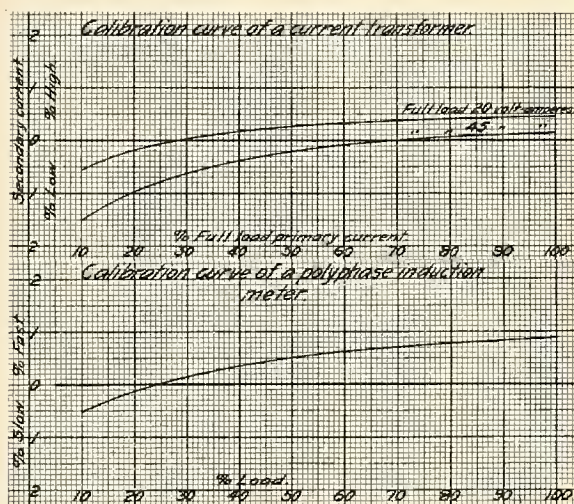 Calibration curve of a current transformer.
2
1
0
1
2
Secondary current
% Low % High
Full load 20 volt-amperes
" " 45 " "
% Full load primary current
10 20 30 40 50 60 70 80 90 100
Calibration curve of a polyphase induction
meter.
2
1
0
1
2
% Slow % Fast
% Load.
10 20 30 40 50 60 70 80 90 100